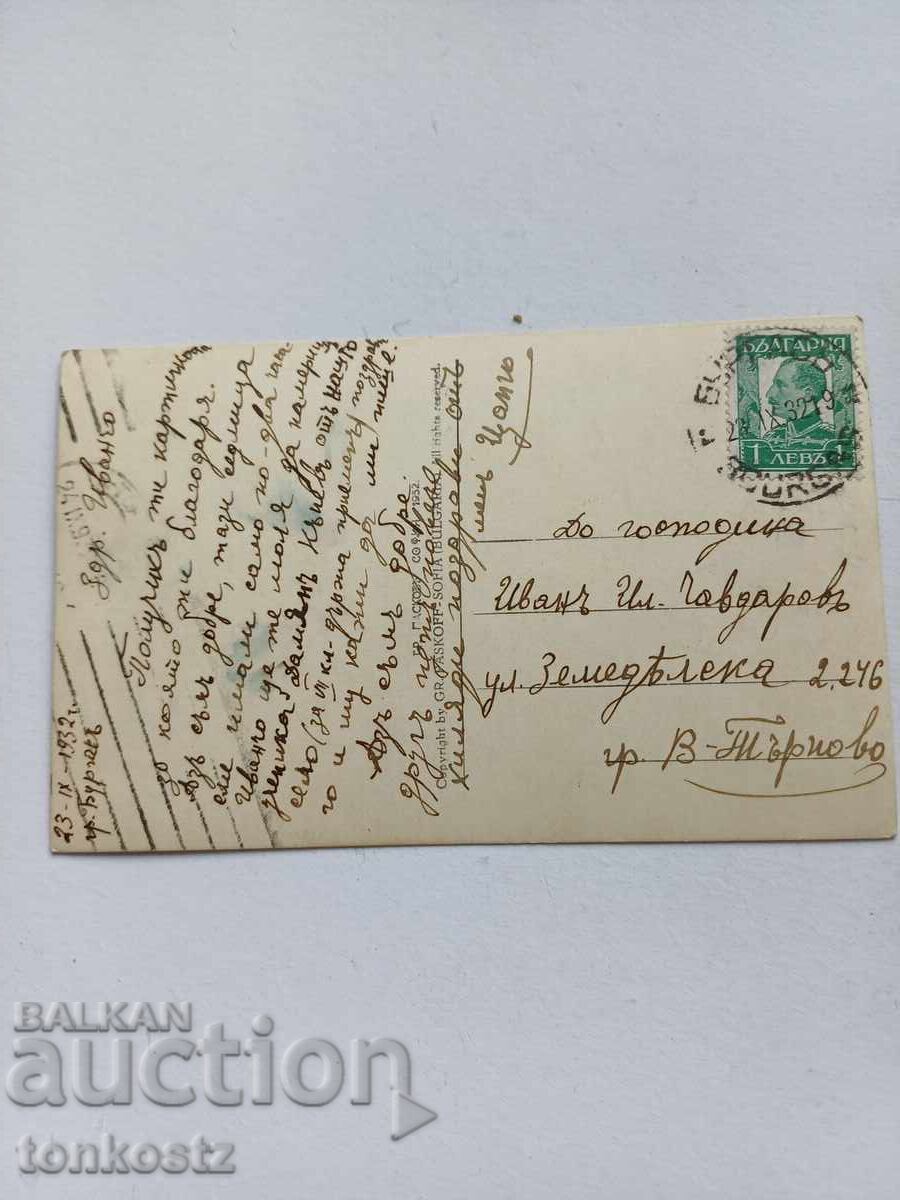 23-IX-1932 г.
гр. Бургасъ
Здр. Иванчо
Получихъ ти картичката
за която ти благодаря.
Азъ съмъ добре, тази седмица
сме имали само по-два часа
Иванчо ще те моля да намериш
ученика Дамянъ Кънев отъ нашето
село (за III ки държа приеменъ изпит)
го и му кажи да ми пише.
Азъ съмъ добре.
другъ пътъ повече
хиляди поздрави отъ
менъ Цанчо
Гр. ПАСКОВЪ, СОФИЯ, 1932.
Copyright by GR. PASKOFF-SOFIA (BULGARIA). All rights reserved.
БЪЛГАРИЯ
1 ЛЕВЪ 1
23 IX 32 19
BOURGAS
До господина
Иванъ Ил. Чавдаровъ
ул. Земедѣлска 2.246
гр. В-Търново
BALKAN
auction
tonkostz